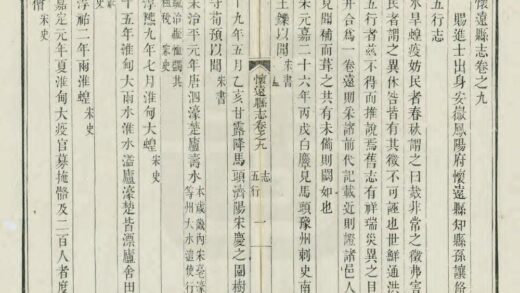 懷遠縣志卷之九
賜進士出身安徽鳳陽府懷遠縣知縣孫讓脩
五行志
水旱蝗疫妨民者春秋謂之曰烖非常之徵弗害
民者謂之異休咎皆有其徵不可誣也世鮮通洪
五行者茲不得而推說焉舊志有祥瑞災異之目
并合爲一卷遠則采諸前代記載近則證諸邑人
見聞補而葺之其有未備則闕如也
宋元嘉二十六年丙戌白麞見馬頭豫州刺史南
王鑠以聞宋書
懷遠縣志卷之九 志 五行 一
十九年五月乙亥甘露降馬頭濟陽宋慶之園樹
守荀預以聞宋書
宋治平元年唐泗濠楚廬壽水本或畿內宋亳
等州大水遣使行
疏治振恤蠲其
賦租宋史
淳熙九年七月淮甸大蝗宋史
十五年淮甸大雨水淮水溢廬濠楚皆漂廬舍田
宋史
淳祐二年兩淮蝗宋史
嘉定元年夏淮甸大疫官募掩骼及二百人者度
僧宋史